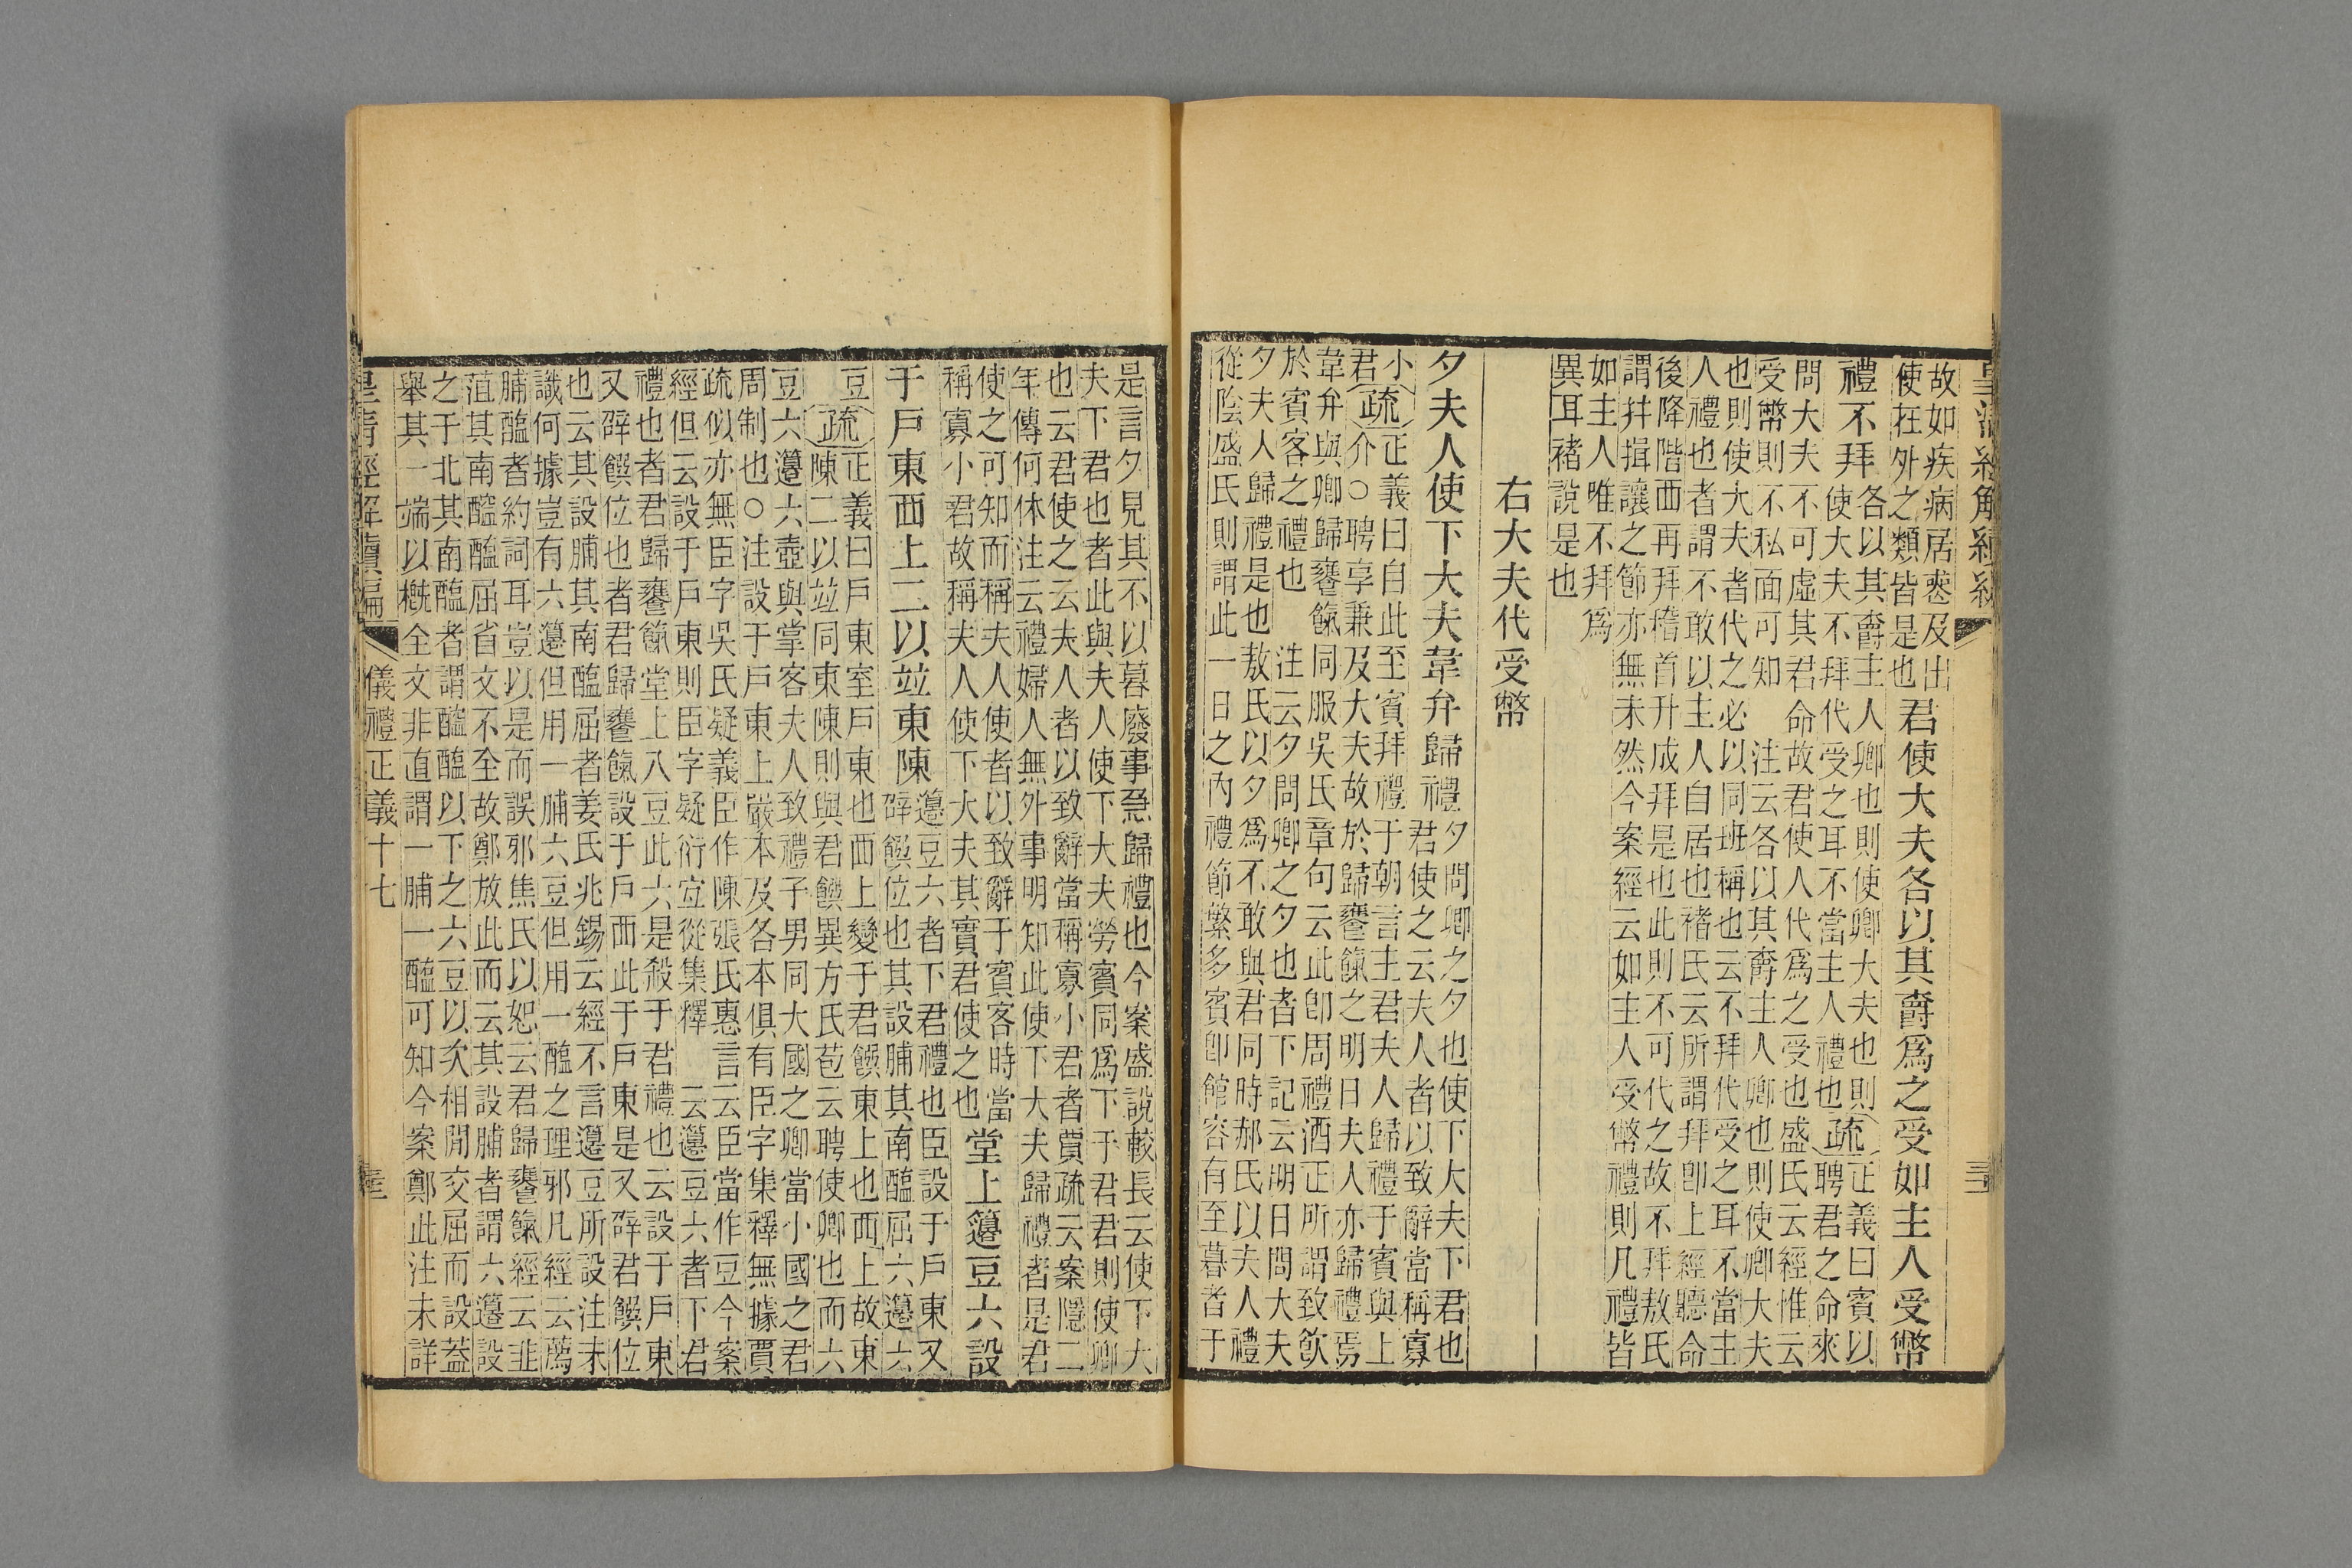 皇清經解續編
故如疾病居喪及出
使在外之類皆是也
君使大夫各以其爵爲之受如主人受幣
禮不拜
各以其爵主人卿也則使卿大夫也則
使大夫不拜代受之耳不當主人禮也
疏
正義曰賓以
聘君之命來
問大夫不可虛其君命故君使人代爲之受也盛氏云經惟云
受幣則不私面可知　注云各以其爵主人卿也則使卿大夫
也則使大夫者代之必以同班稱也云不拜代受之耳不當主
人禮也者謂不敢以主人自居也褚氏云所謂拜卽上經聽命
後降階西再拜稽首升成拜是也此則不可代之故不拜敖氏
謂幷揖讓之節亦無未然今案經云如主人受幣禮則凡禮皆
如主人唯不拜爲
異耳褚說是也
右大夫代受幣
夕夫人使下大夫韋弁歸禮
夕問卿之夕也使下大夫下君也
君使之云夫人者以致辭當稱寡
小
君
疏
正義曰自此至賓拜禮于朝言主君夫人歸禮于賓與上
介○聘享兼及大夫故於歸饔餼之明日夫人亦歸禮焉
韋弁與卿歸饔餼同服吳氏章句云此卽周禮酒正所謂致飲
於賓客之禮也　注云夕問卿之夕也者下記云明日問大夫
夕夫人歸禮是也敖氏以夕爲不敢與君同時郝氏以夫人禮
從陰盛氏則謂此一日之內禮節繁多賓卽館容有至暮者于
是言夕見其不以暮廢事急歸禮也今案盛說較長云使下大
夫下君也者此與夫人使下大夫勞賓同爲下于君君則使卿
也云君使之云夫人者以致辭當稱寡小君者賈疏云案隱二
年傳何休注云禮婦人無外事明知此使下大夫歸禮者是君
使之可知而稱夫人使者以致辭于賓客時當
稱寡小君故稱夫人使下大夫其實君使之也
堂上籩豆六設
于戶東西上二以竝東陳
籩豆六者下君禮也臣設于戶東又
辟饌位也其設脯其南醢屈六籩六
豆
疏
正義曰戶東室戶東也西上變于君饌東上也西上故東
陳二以竝同東陳則與君饌異方氏苞云聘使卿也而六
豆六籩六壺與掌客夫人致禮子男同大國之卿當小國之君
周制也○注設于戶東上嚴本及各本俱有臣字集釋無據賈
疏似亦無臣字吳氏疑義臣作陳張氏惠言云臣當作豆今案
經但云設于戶東則臣字疑衍宜從集釋　云籩豆六者下君
禮也者君歸饔餼堂上八豆此六是殺于君禮也云設于戶東
又辟饌位也者君歸饔餼設于戶西此于戶東是又辟君饌位
也云其設脯其南醢屈者姜氏兆錫云經不言籩豆所設注未
識何據豈有六籩但用一脯六豆但用一醢之理邪凡經云薦
脯醢者約詞耳豈以是而誤邪焦氏以恕云君歸饔餼經云韭
菹其南醓醢屈省文不全故鄭放此而云其設脯者謂六籩設
之于北其南醢者謂醓醢以下之六豆以次相閒交屈而設蓋
舉其一端以概全文非直謂一脯一醢可知今案鄭此注未詳
皇清經解續編　儀禮正義十七